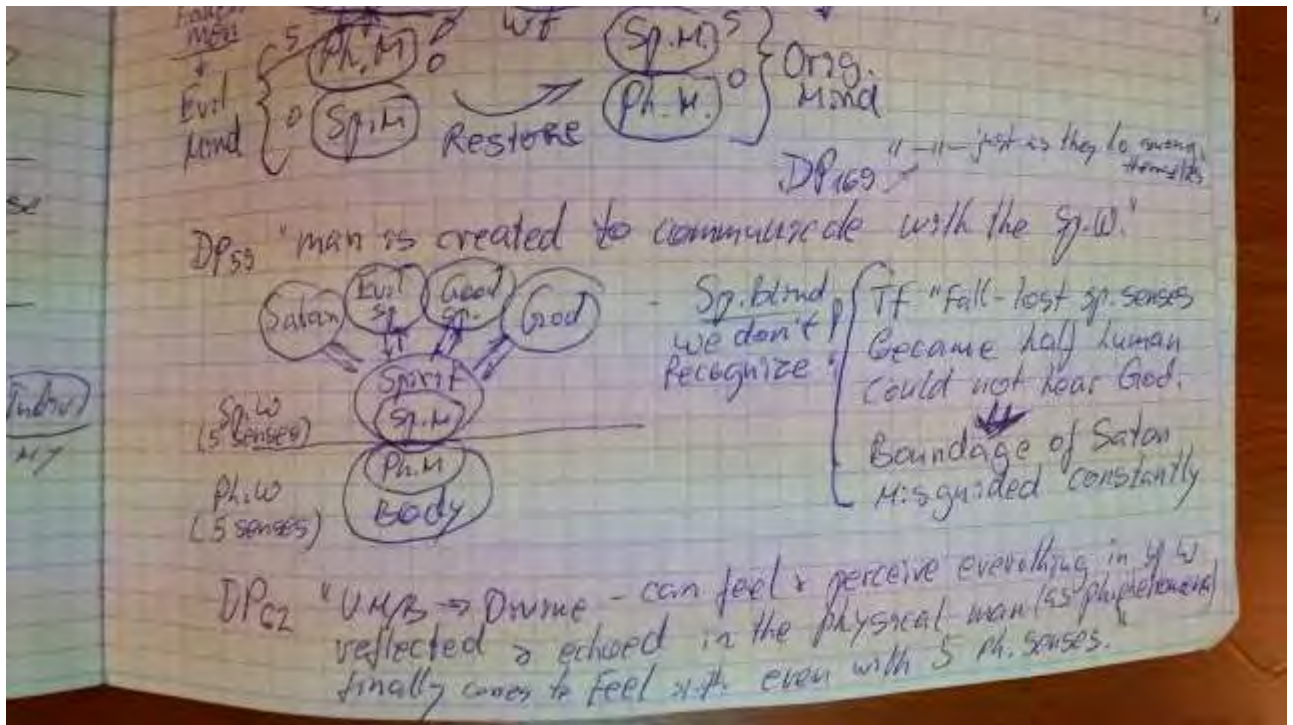 Men
Evil
Mind
S Ph.M.
O Sp.M
Restore
Sp.M. S
Ph.M. O
Orig.
Mind
DP169 "—"— just as they do among
themselves
DP59 "man is created to communicade with the Sp.W."
Satan
Evil
sp.
Good
sp.
God
Spirit
Sp.M
Sp.W
(5 senses)
Ph.M
Body
Ph.W
(5 senses)
- Sp.blind
we don't
Recognize
Tf "Fall - lost sp. senses
Became half human
Could not hear God.
Boundage of Satan
Misguided constantly
DP62 "UM/B ⇒ Divine - can feel & perceive everything in sp W
reflected & echoed in the physical man (as phenomena)
finally comes to feel even with 5 Ph. senses."
Individ